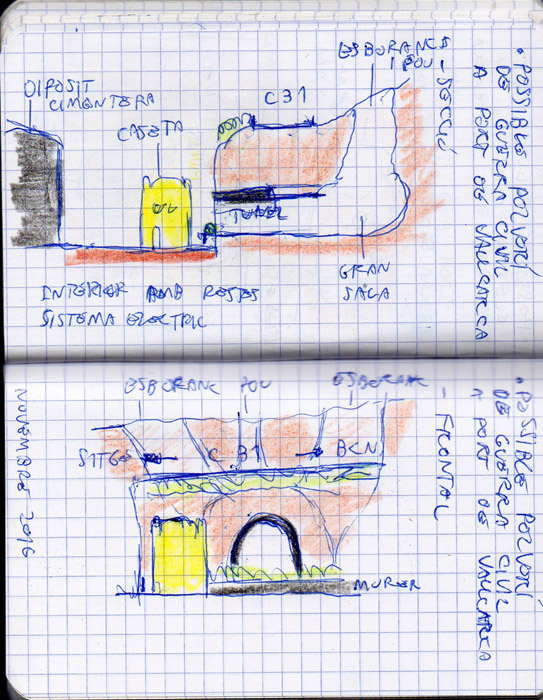 • POSSIBLE POLVORÍ
DE GUERRA CIVIL
A PORT DE VALLCARCA
- SECCIÓ
ESBORANCS
I POU
DIPOSIT
CIMENTERA
C31
CASETA
TUNEL
GRAN
SALA
INTERIOR AMB RESTES
SISTEMA ELECTRIC
• POSSIBLE POLVORÍ
DE GUERRA CIVIL
A PORT DE VALLCARCA
- FRONTAL
ESBORANC POU ESBORANC
SITGES C B1 BCN
MURET
NOVEMBRE 2016